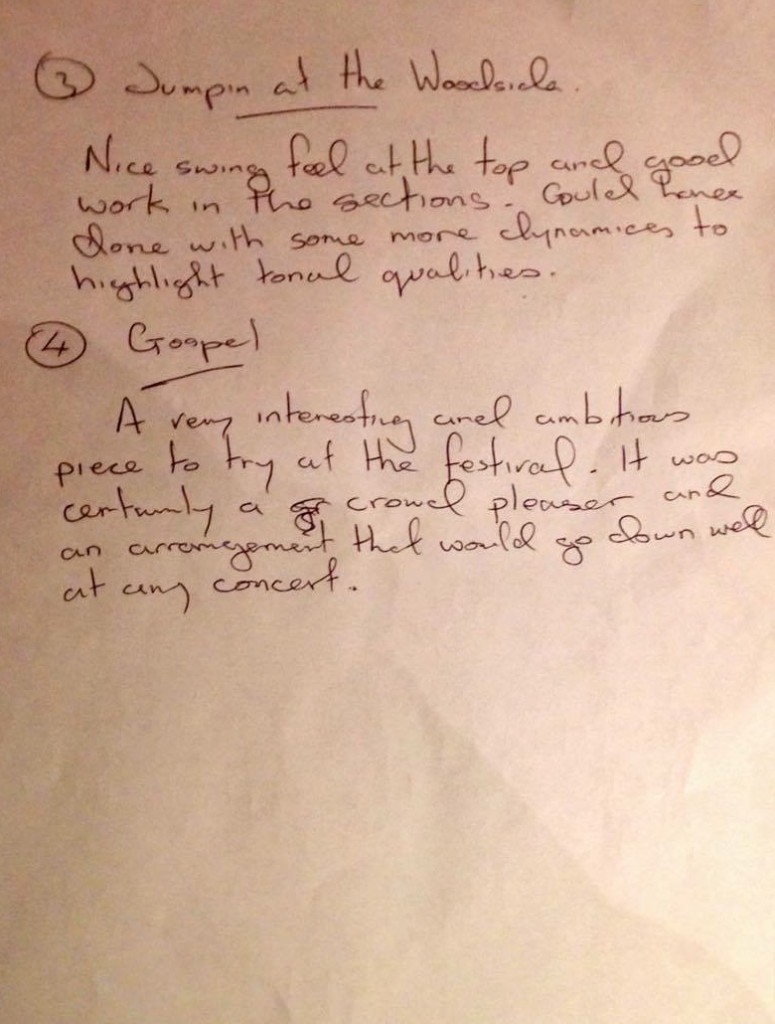 ③ Jumpin at the Woodside.
Nice swing feel at the top and good
work in the sections. Could have
done with some more dynamics to
highlight tonal qualities.
④ Gospel
A very interesting and ambitious
piece to try at the festival. It was
certainly a crowd pleaser and
an arrangement that would go down well
at any concert.